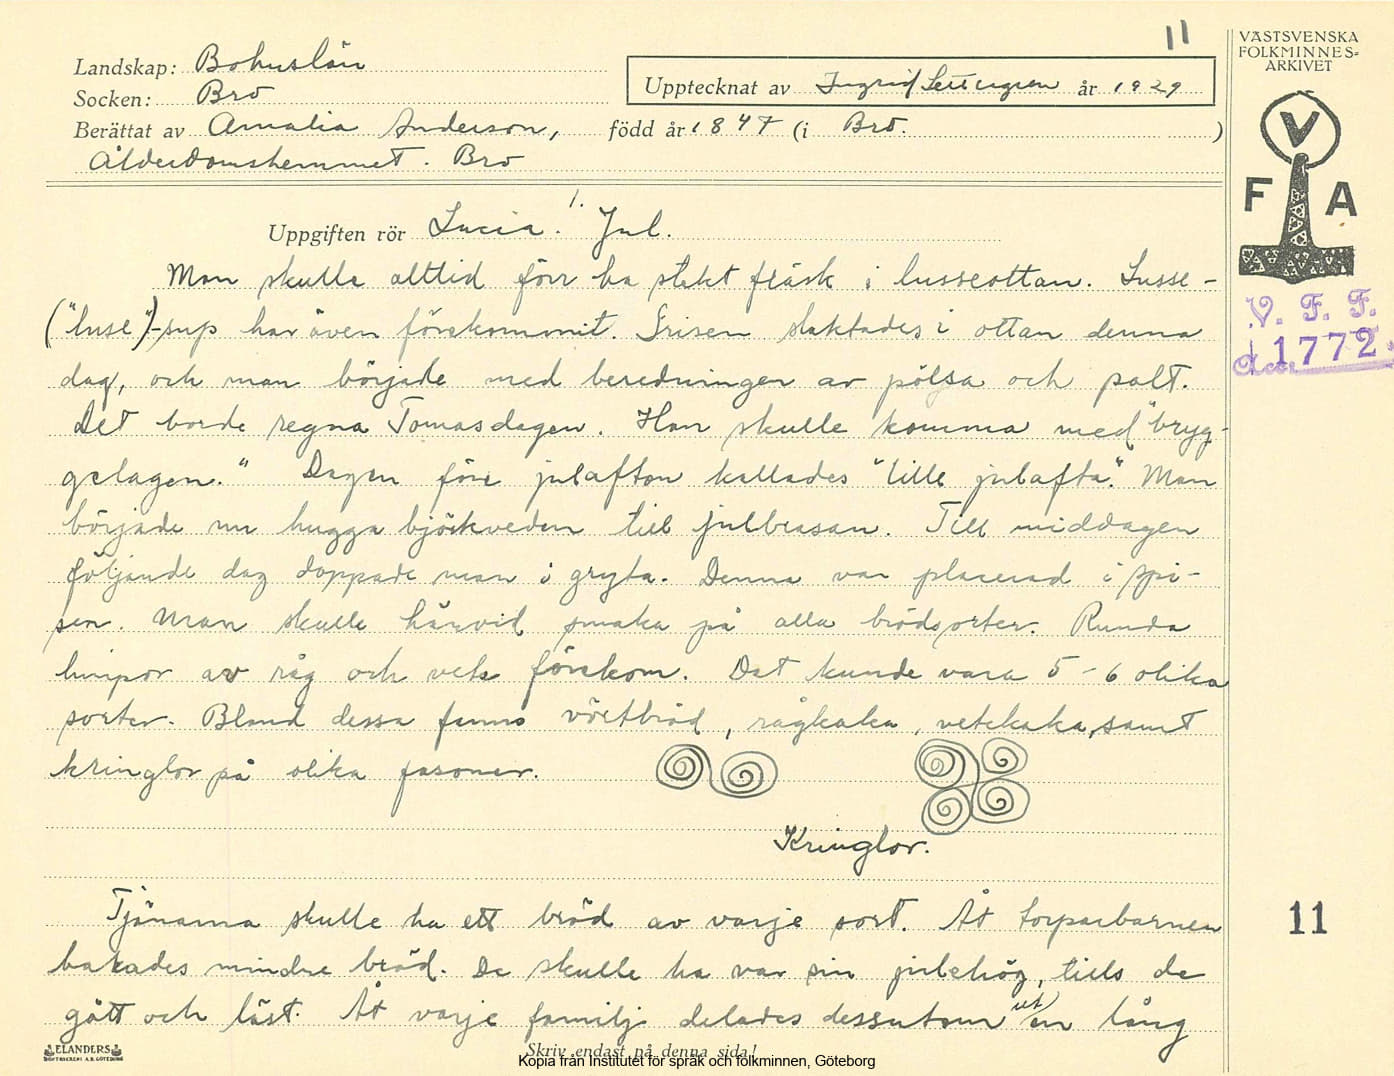 11
VÄSTSVENSKA
FOLKMINNES-
ARKIVET
Landskap: Bohuslän
Upptecknat av Ingrid år 1929
Socken: Bro
Berättat av Amalia Anderson, född år 1847 (i Bro.)
Ålderdomshemmet. Bro
V
F A
1.
Uppgiften rör Lucia. Jul.
Man skulle alltid förr ha stekt fläsk i lusseottan. Lusse-
("luse")-sup har även förekommit. Grisen slaktades i ottan denna
dag, och man började med beredningen av pölsa och palt.
Det borde regna Tomasdagen. Han skulle komma med "bryg-
gelagen." Dagen före julafton kallades "lille julafta". Man
började nu hugga björkveden till julbrasan. Till middagen
följande dag doppade man i gryta. Denna var placerad i spi-
sen. Man skulle härvid smaka på alla brödsorter. Runda
limpor av råg och vete förekom. Det kunde vara 5-6 olika
sorter. Bland dessa fanns vörtbröd, rågkaka, vetekaka, samt
kringlor på olika fasoner.
Kringlor.
Tjänarna skulle ha ett bröd av varje sort. Åt torparbarnen
bakades mindre bröd. De skulle ha var sin julehög, tills de
gått och läst. Åt varje familj delades dessutom ut en lång
V. F. F.
1772
11
ELANDERS
BOKTRYCKERI A.B. GÖTEBORG
Skriv endast på denna sida!
Kopia från Institutet för språk och folkminnen, Göteborg